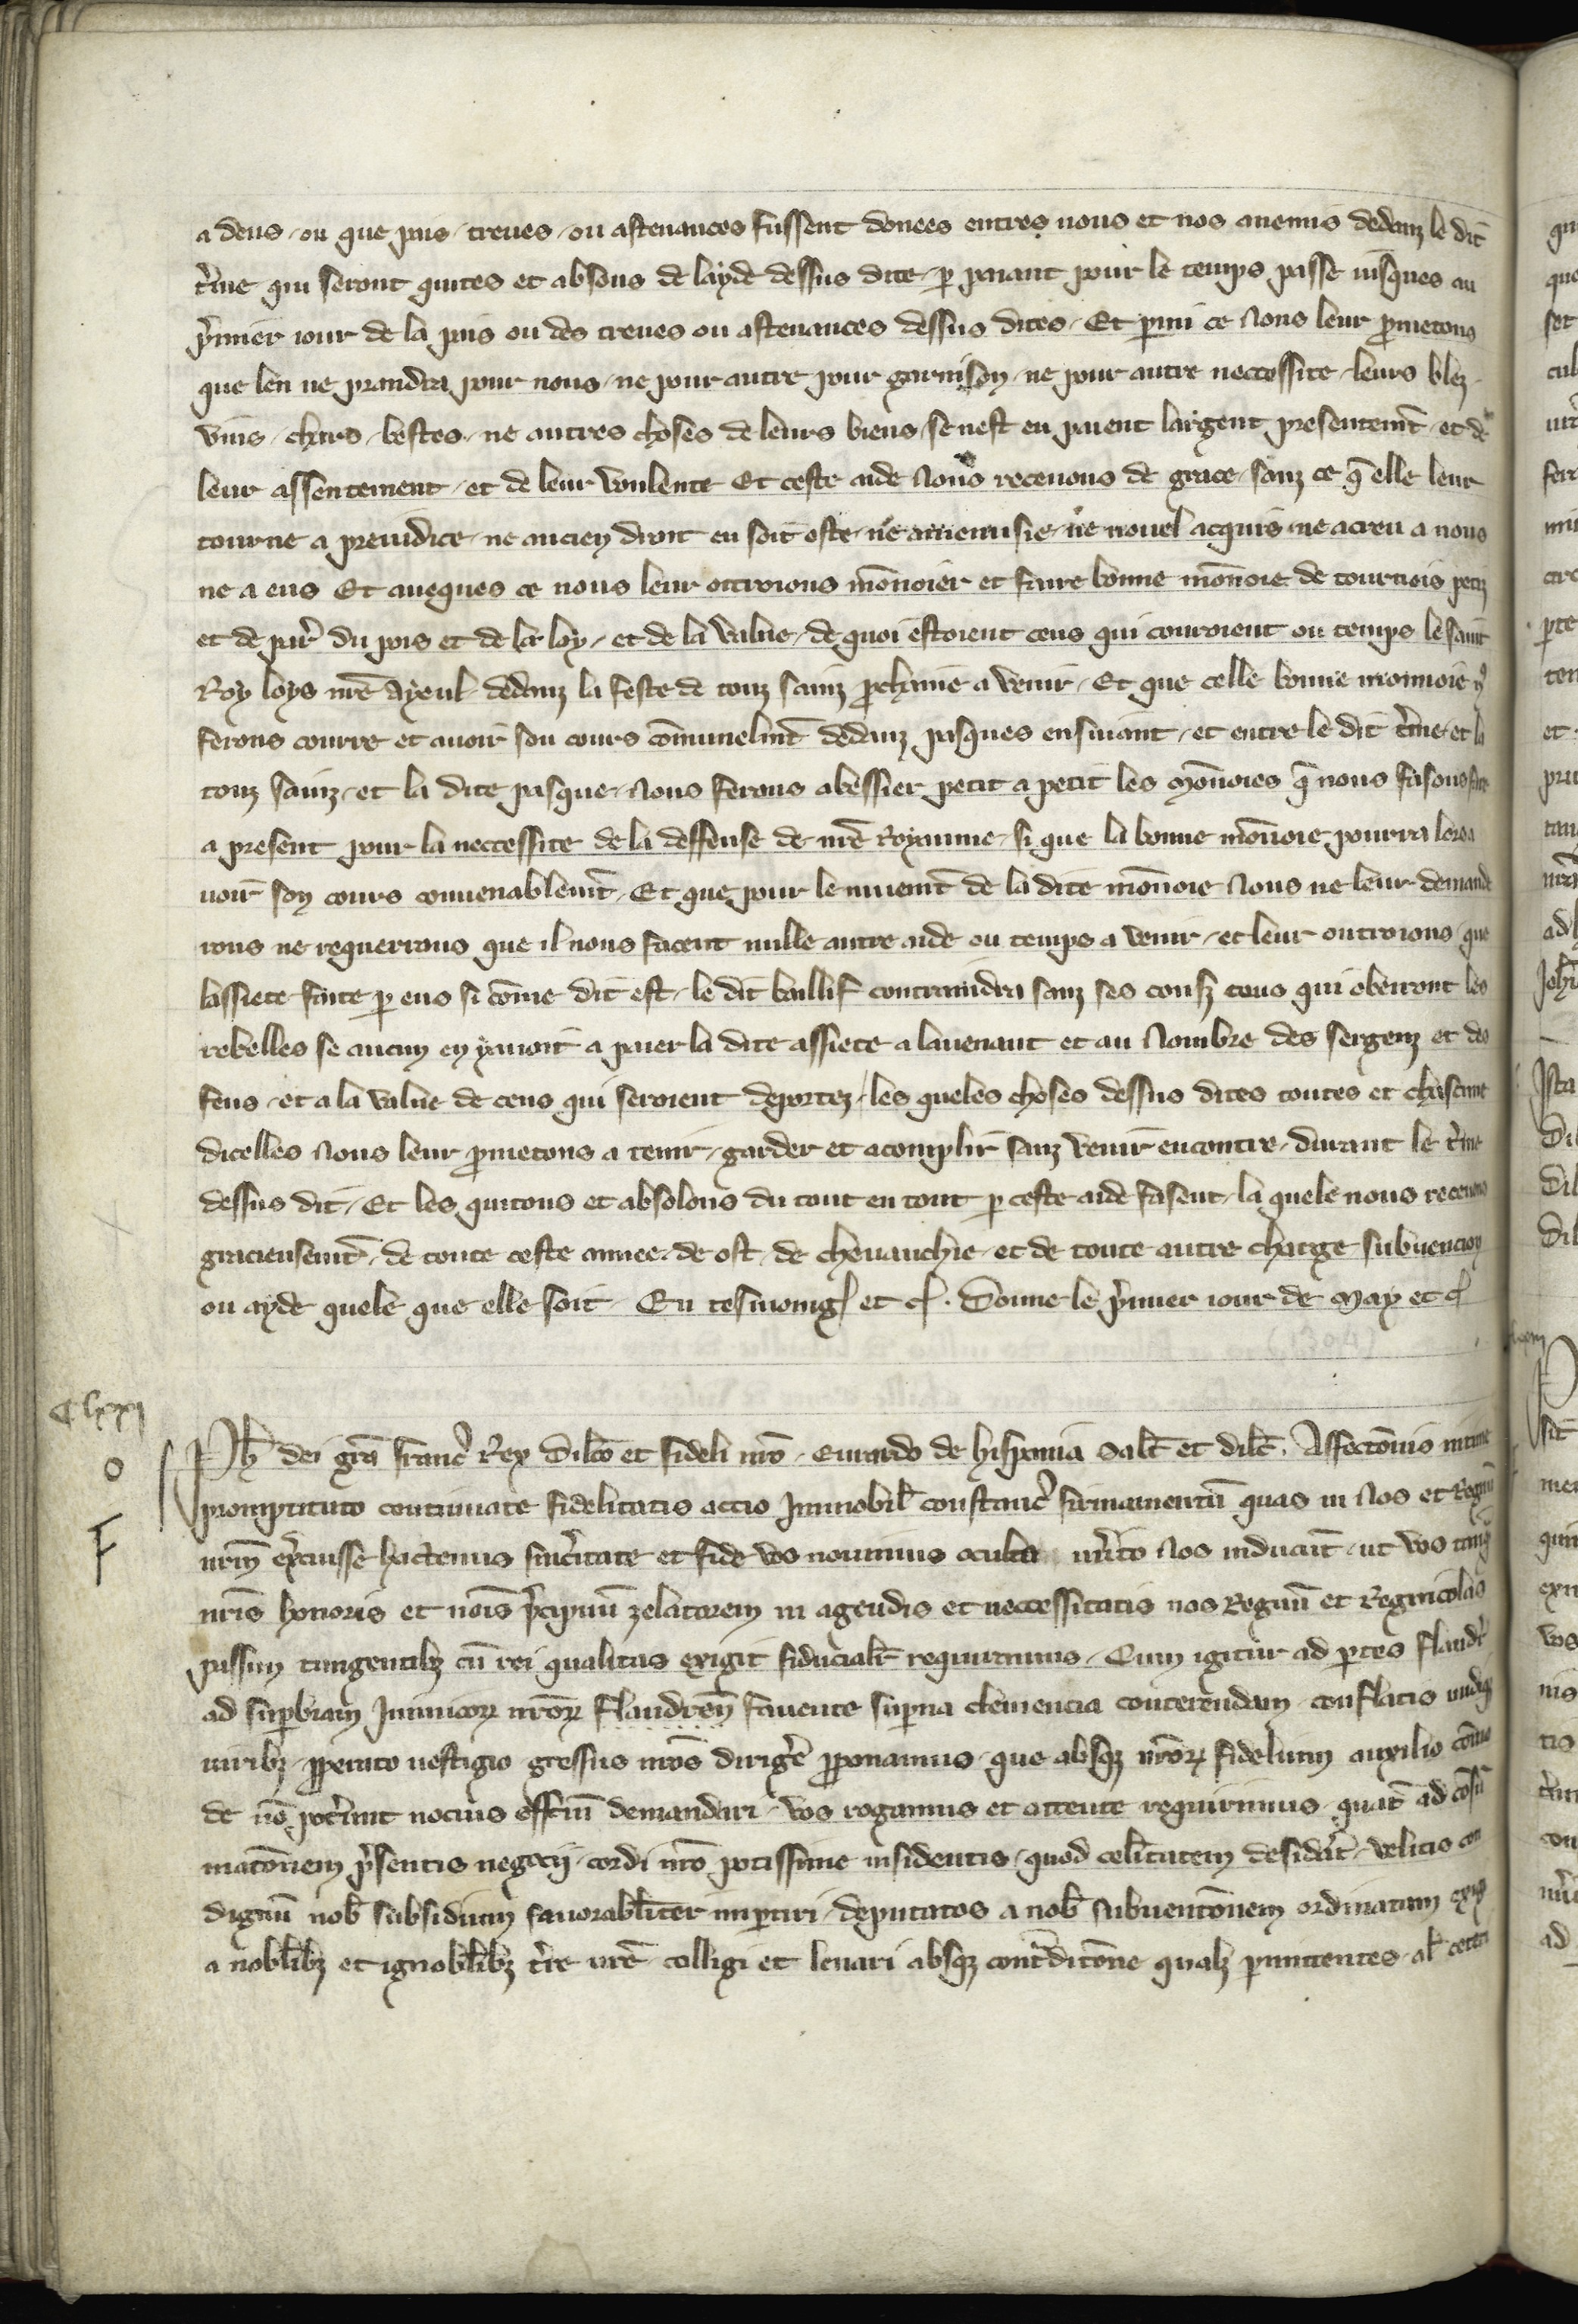 a deus ou que pais treues ou astenances fussent donees entres nous et nos anemis dedanz le dit
t̾me qui seront quites et absous de layde dessus dite p paiant pour le temps passe iusques au
p̾mier iour de la pais ou des treues ou astenances dessus dites Et pmi ce Nous leur pmetons
que len ne prandra pour nous ne pour autre pour garnison ne pour autre neccessite leurs blez
vins chars bestes ne autres choses de leurs biens se nest en paient largent presentemt̄ et de
leur assentement et de leur voulente Et ceste aide Nous receuons de grace sanz ce q̄ elle leur
tourne a preiudice ne ancien droit en soit oste ne amenusie ne nouel acquis ne acreu a nous
ne a eus Et aueques ce nous leur ottroions mōnoier et faire bonne mōnoie de tournois petiz
et de par̾ du pois et de la loy et de la value de quoi estoient ceus qui couroient ou temps le saint
Roy loys nr̄e Ayeul dedanz la feste de touz sainz pchaine a venir Et que celle bonne monnoie
ferons courre et auoir son cours cōmunelmt̄ dedanz pasques ensiuant et entre le dit t̾me et la
touz sainz et la dite pasque Nous ferons abessier petit a petit les Mōnoies q̄ nous fasons faire
a present pour la neccessite de la deffense de nr̄e Royaume si que la bonne mōnoie pourra lors a
uoir son cours conuenablemt̄ Et que pour le muemt̄ de la dite mōnoie Nous ne leur demande
rons ne requerrons que il nous facent nulle autre aide ou temps a venir et leur outroions que
lassiete faite p eus si cōme dit est le dit baillif contraindra sanz ses couz ceus qui obeiront les
rebelles se aucun en y auoit a paier la dite assiete a lauenant et au Nombre des sergenz et des
feus et a la value de ceus qui seroient deportez les queles choses dessus dites toutes et chascune
dicelles Nous leur pmetons a tenir garder et acomplir sanz venir encontre durant le t̾me
dessus dit Et les quitons et absolons du tout en tout p ceste aide fasent la quele nous receuons
graciensemt̄ de toute ceste annee de ost de cheuauchie et de toute autre charge subuencion
ou ayde quele que elle soit En tesmoing et c̄ Donne le p̾mier iour de May et c̄
(1304)
Clxxi
o
F
Ph̄ dei grā franc̾ Rex Dilc̄o et fideli nr̄o Eurardo de hispania Salt̄ et dilc̄ Affectōnis intime
promptitudo continuate fidelitatis actio Immobil̄ constanc̾ firmamentū quas in Nos et Regnū
nr̄m ex̾cuisse hactenus sinc̾itate et fide vos nouimus oculata m̾ito Nos inducūt ut vos tanq̄
nr̄is honoris et nōis p̾cipuū zelatorem in agendis et neccessitatis nos Regnū et Regnicolas
passim tangentibȝ cū rei qualitas exigit fiducialit̄ requiramus Cum igitur ad ptes flandr̾
ad supbiam Inimicoꝝ nr̄oꝝ flandren̄ fauente supna clemencia conterendam conflatis undiqȝ
uiribȝ ppetuito uestigio gressus nr̄os dirige̾ pponamus que absqȝ nr̄oꝝ fidelium auxilio cōmo
de nō pot̾unt nocius effc̄ui demandari vos rogamus et attente requirimus quat̄ ad cōsu
matōnem p̾sentis negocij cordi nr̄o potissime insidentis quod celit̾atem desidat̾ velitis con
dignū nob̄ subsidium fauorabl̄iter imptiri deputatos a nob̄ subuentōnem ordinatam
a nobl̄ibȝ et ignobl̄ibȝ t̾re ur̄e colligi et leuari absqȝ contͣditōne qualȝ pmittentes al̄